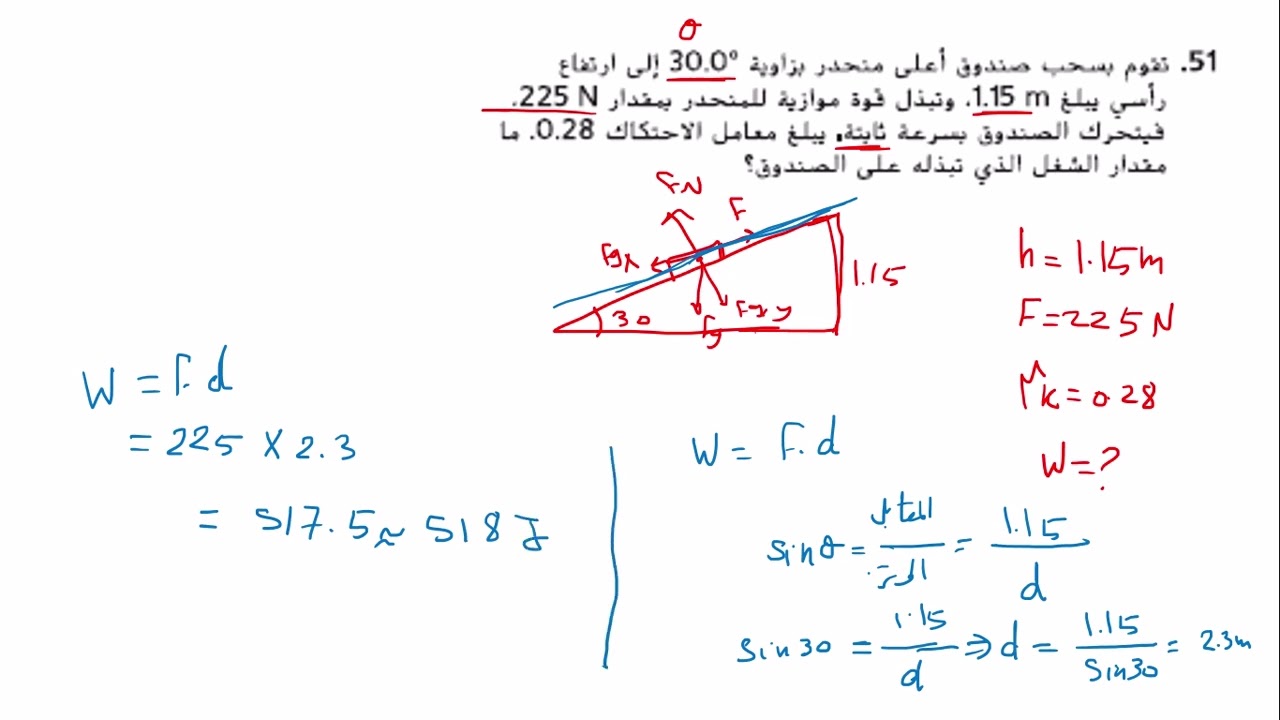 θ
51. تقوم بسحب صندوق أعلى منحدر بزاوية 30.0° إلى ارتفاع
رأسي يبلغ 1.15 m. وتبذل قوة موازية للمنحدر بمقدار 225 N.
فيتحرك الصندوق بسرعة ثابتة. يبلغ معامل الاحتكاك 0.28. ما
مقدار الشغل الذي تبذله على الصندوق؟
FN
F
Fgx
1.15
30
Fg
Fgy
h = 1.15m
F = 225 N
μk = 0.28
W = ?
W = F. d
= 225 × 2.3
= 517.5 ≈ 518 J
W = F. d
sinθ = المقابل / الوتر = 1.15 / d
sin30 = 1.15 / d ⇒ d = 1.15 / sin30 = 2.3m